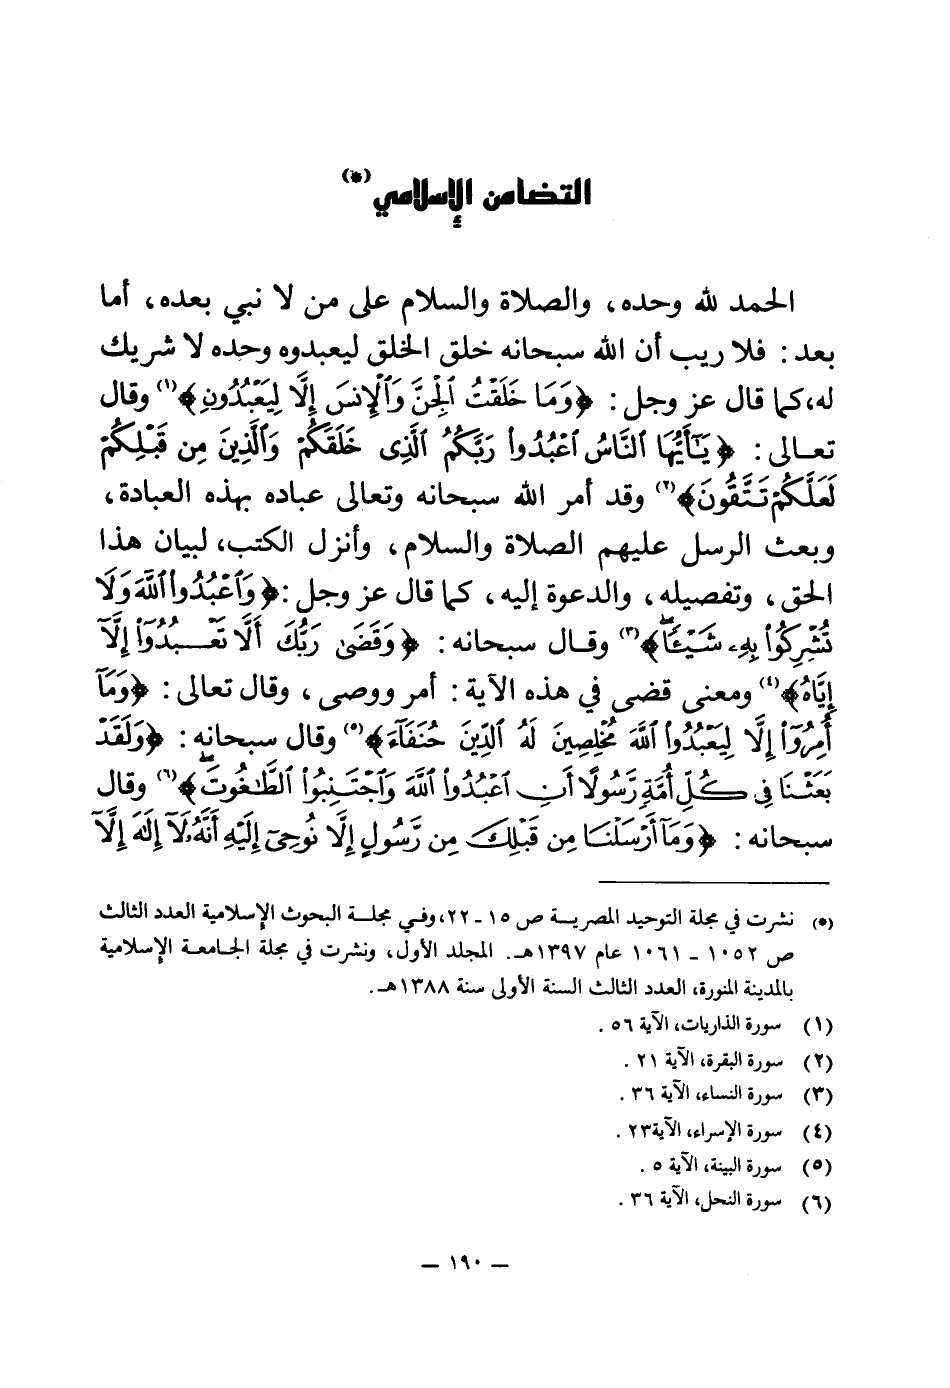 التضامن الإسلامي(*)
الحمد لله وحده، والصلاة والسلام على من لا نبي بعده، أما
بعد: فلا ريب أن الله سبحانه خلق الخلق ليعبدوه وحده لا شريك
له،كما قال عز وجل: ﴿وَمَا خَلَقْتُ ٱلْجِنَّ وَٱلْإِنسَ إِلَّا لِيَعْبُدُونِ﴾(١) وقال
تعالى: ﴿يَـٰٓأَيُّهَا ٱلنَّاسُ ٱعْبُدُوا۟ رَبَّكُمُ ٱلَّذِى خَلَقَكُمْ وَٱلَّذِينَ مِن قَبْلِكُمْ
لَعَلَّكُمْ تَتَّقُونَ﴾(٢) وقد أمر الله سبحانه وتعالى عباده بهذه العبادة،
وبعث الرسل عليهم الصلاة والسلام، وأنزل الكتب، لبيان هذا
الحق، وتفصيله، والدعوة إليه، كما قال عز وجل:﴿وَٱعْبُدُوا۟ ٱللَّهَ وَلَا
تُشْرِكُوا۟ بِهِۦ شَيْـًٔاۖ﴾(٣) وقال سبحانه: ﴿وَقَضَىٰ رَبُّكَ أَلَّا تَعْبُدُوٓا۟ إِلَّآ
إِيَّاهُ﴾(٤) ومعنى قضى في هذه الآية: أمر ووصى، وقال تعالى: ﴿وَمَآ
أُمِرُوٓا۟ إِلَّا لِيَعْبُدُوا۟ ٱللَّهَ مُخْلِصِينَ لَهُ ٱلدِّينَ حُنَفَآءَ﴾(٥) وقال سبحانه: ﴿وَلَقَدْ
بَعَثْنَا فِى كُلِّ أُمَّةٍ رَّسُولًا أَنِ ٱعْبُدُوا۟ ٱللَّهَ وَٱجْتَنِبُوا۟ ٱلطَّـٰغُوتَۖ﴾(٦) وقال
سبحانه: ﴿وَمَآ أَرْسَلْنَا مِن قَبْلِكَ مِن رَّسُولٍ إِلَّا نُوحِىٓ إِلَيْهِ أَنَّهُۥ لَآ إِلَـٰهَ إِلَّآ
(*) نشرت في مجلة التوحيد المصرية ص ١٥ - ٢٢، وفي مجلة البحوث الإسلامية العدد الثالث
ص ١٠٥٢ - ١٠٦١ عام ١٣٩٧هـ. المجلد الأول، ونشرت في مجلة الجامعة الإسلامية
بالمدينة المنورة، العدد الثالث السنة الأولى سنة ١٣٨٨هـ.
(١) سورة الذاريات، الآية ٥٦ .
(٢) سورة البقرة، الآية ٢١ .
(٣) سورة النساء، الآية ٣٦ .
(٤) سورة الإسراء، الآية٢٣ .
(٥) سورة البينة، الآية ٥ .
(٦) سورة النحل، الآية ٣٦ .
— ١٩٠ —